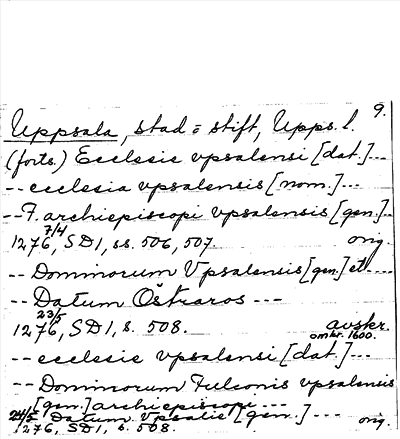 9.
Uppsala, stad o stift, Upps. l.
(forts.) Ecclesie vpsalensi [dat.]...
-- ecclesia vpsalensis [nom.]...
-- F. archiepiscopi vpsalensis [gen.]..
7/4
1276, SD1, ss. 506, 507. orig.
-- Dominorum Vpsalensis [gen.] et ---
-- Datum Östraros ---
23/5
1276, SD1, s. 508. avskr.
omkr. 1600.
-- ecclesie vpsalensi [dat.]...
-- Dominorum Fulconis vpsalensis
[gen.] archiepiscopi ---
24/5 Datum Vpsalie [gen.] --- orig.
1276, SD1, s. 508.